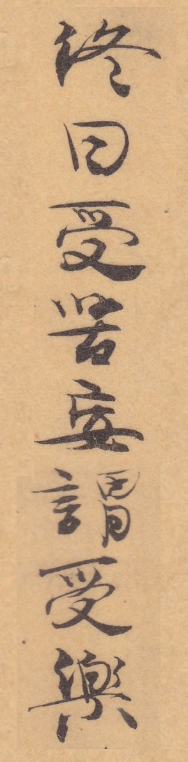 終日受苦妄謂受樂